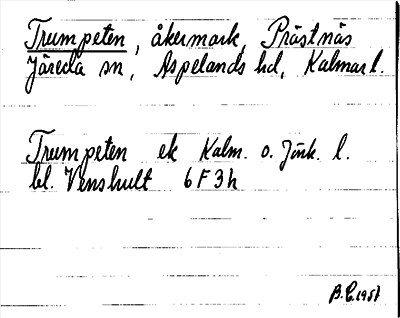 Trumpeten, åkermark, Prästnäs
Järeda sn, Aspelands hd, Kalmar l.
Trumpeten ek Kalm. o. Jönk. l.
bl. Venshult 6 F 3 h
B.E. 1957